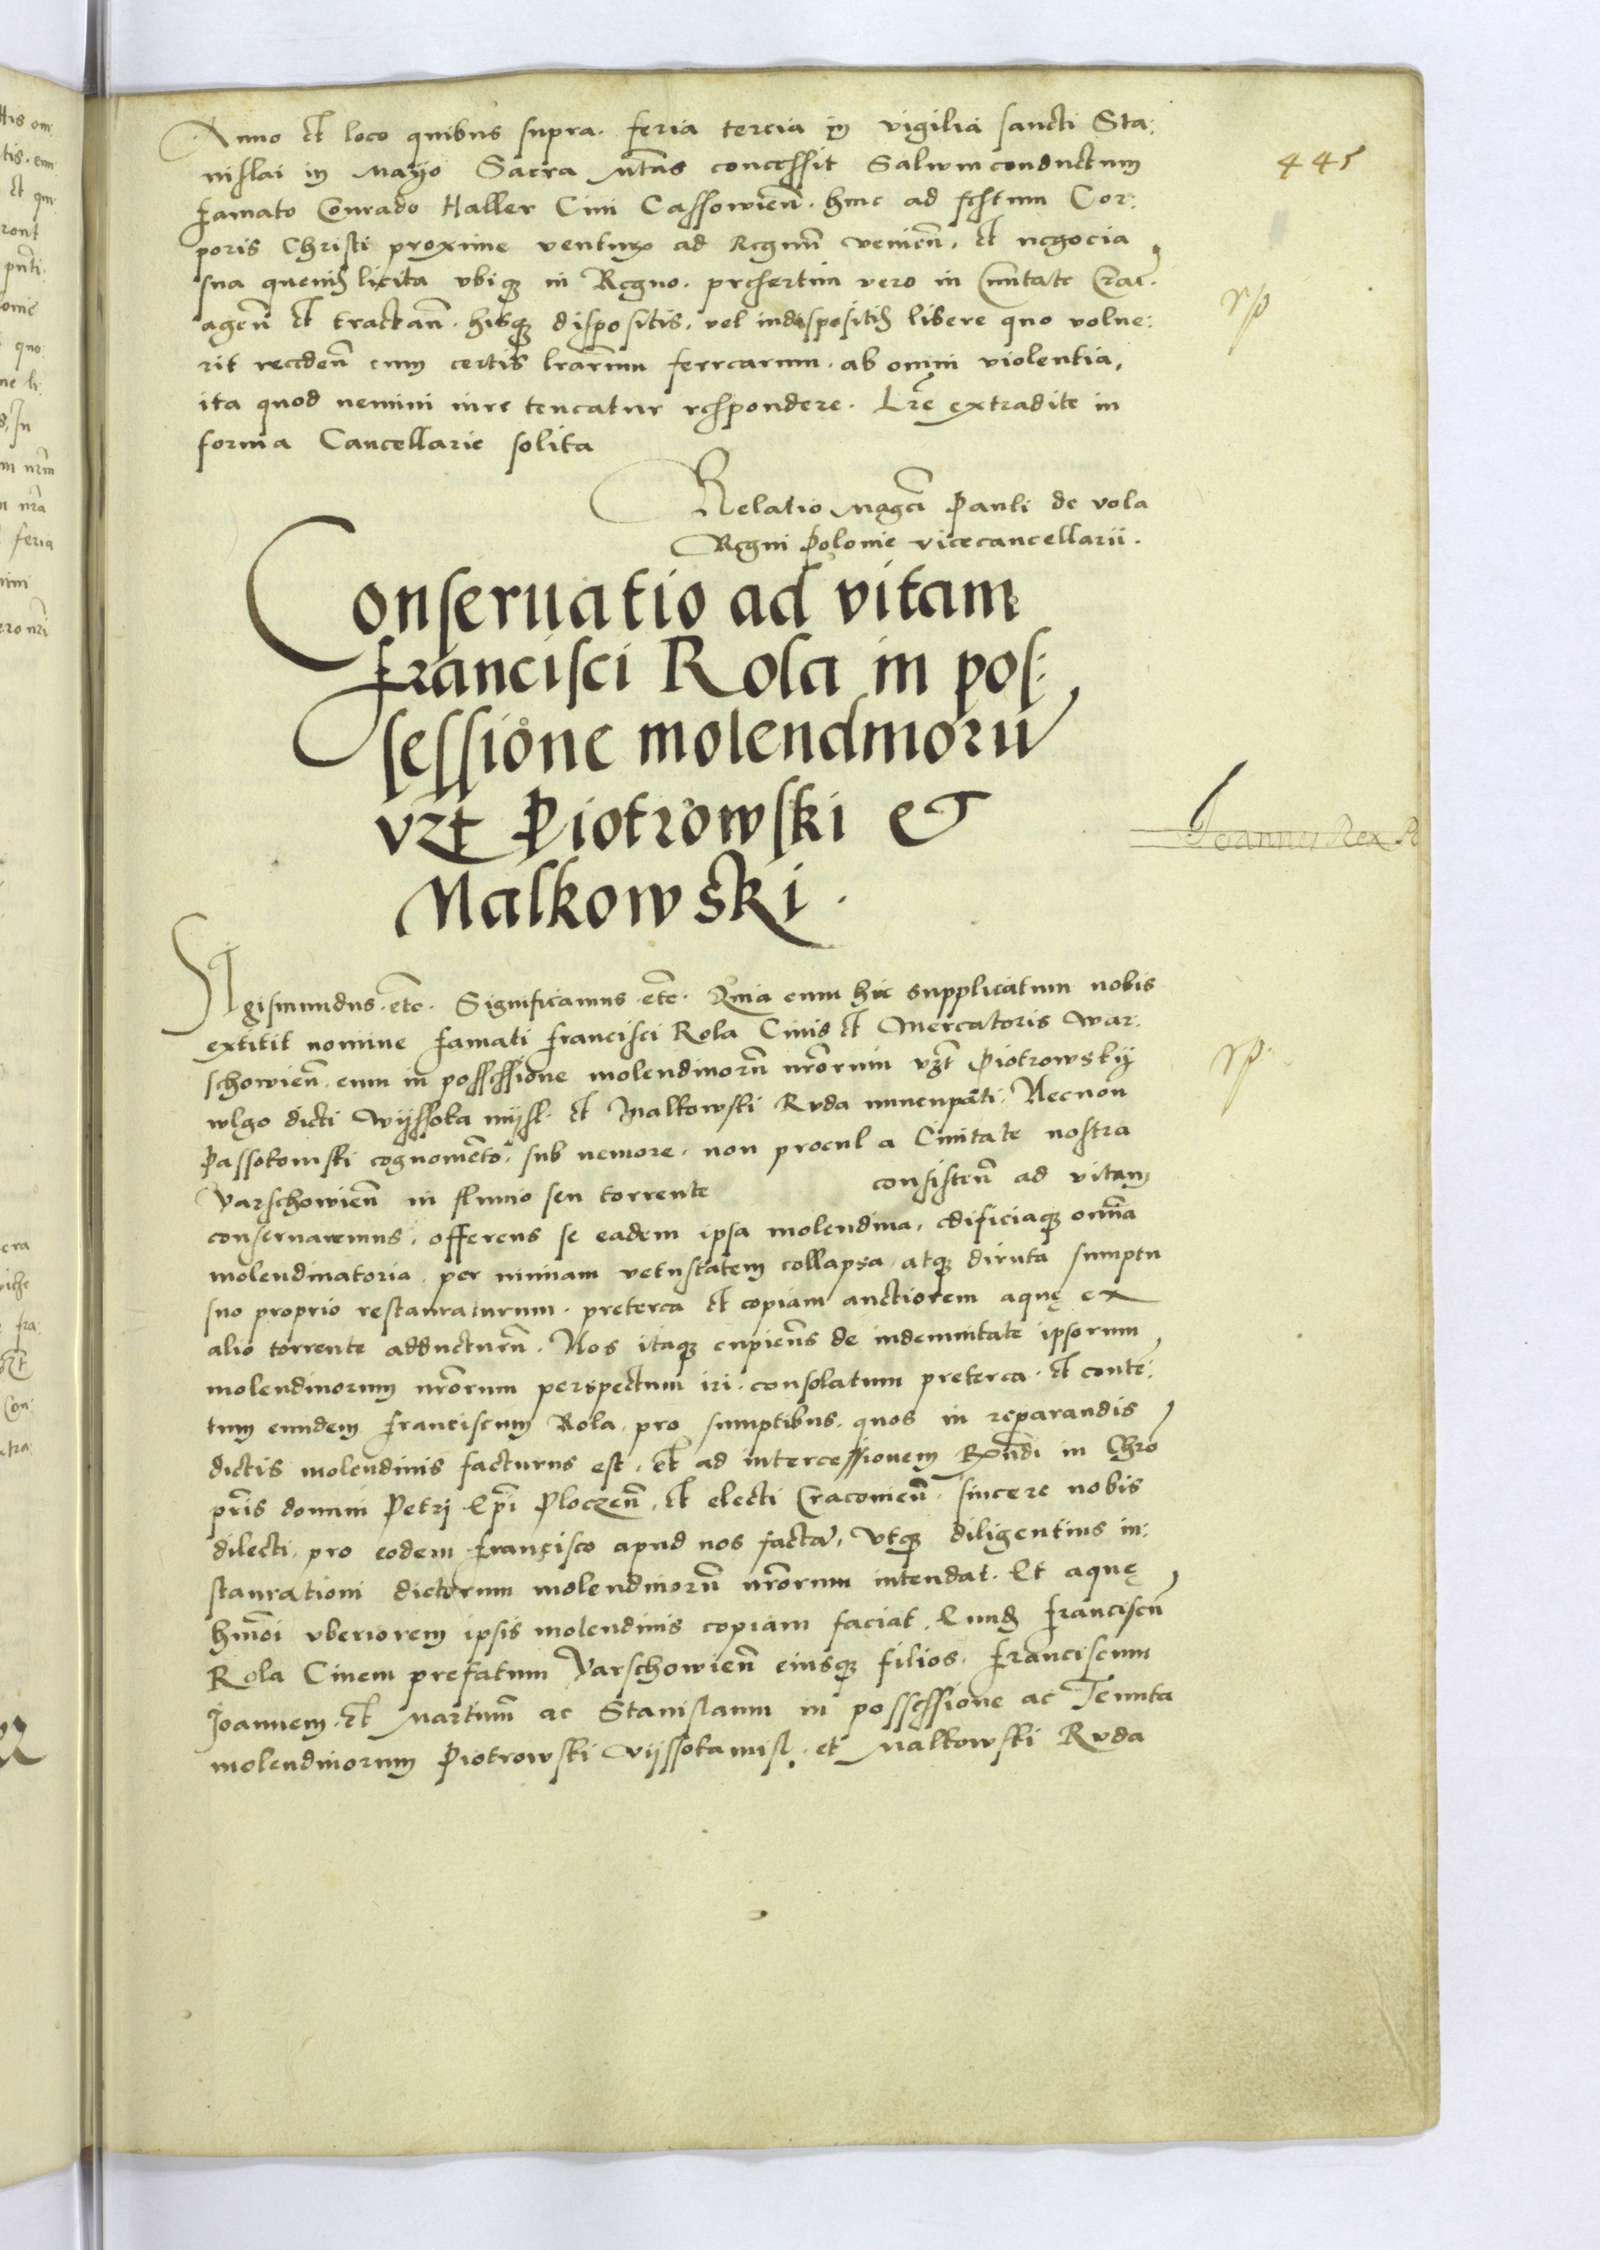 445
Anno et loco quibus supra. feria tercia in vigilia sancti Sta:
nislai in Mayo Sacra Mtas concessit Salwmconductum
famato Conrado Haller Ciui Cassowieñ. hinc ad festum Cor:
poris Christi proxime venturo ad Regnum venieñ. et negocia
sua queuis licita vbiqꝫ in Regno. presertim vero in Ciuitate Crac.
ageñ et tractañ. hisqꝫ dispositis, vel indispositis libere quo volue:
rit recedeñ cum certis lrarum ferrearum. ab omni violentia,
ita quod nemini iure teneatur respondere. Lre extradite in
forma Cancellarie solita
Relatio Magci Pauli de vola
Regni Polonie vicecancellarii.
Conseruatio ad vitam
francisci Rola in pos:
sessione molendinorū
vzt Piotrowski et
Malkowski.
Joannes Rex
SIgismundus. etc. Significamus. etc. Quia cum hic supplicatum nobis
extitit nomine famati francisci Rola Ciuis et Mercatoris war:
schowieñ. eum in possessione molendinorū nrorum vzt Piotrowskij
wlgo dicti wijssoka mijsl. et Malkowski Ruda nuncupati. Necnon
Passokowski cognomento. sub nemore. non procul a Ciuitate nostra
Varschowieñ in fluuio seu torrente consisteñ ad vitam
conseruaremus, offerens se eadem ipsa molendina, edificiaqꝫ omnia
molendinatoria. per nimiam vetustatem collapsa, atqꝫ diruta sumptu
suo proprio restauraturum. preterea et copiam auctiorem aquę ex
alio torrente adducturū. Nos itaqꝫ cupieñs de indemnitate ipsorum
molendinorum nrorum perspectum iri. consolatum preterea. et conte:
tum eundem franciscum Rola. pro sumptibus. quos in reparandis
dictis molendinis facturus est, et ad intercessionem Rndi in Chro
pris domini Petri Epi Ploczeñ, et electi Cracouieñ. sincere nobis
dilecti, pro eodem francisco apud nos factā, Vtqꝫ diligentius in:
staurationi dictorum molendinorū nrorum intendat. Et aquę
hmoi vberiorem ipsis molendinis copiam faciat. Eund franciscū
Rola Ciuem prefatum Varschowieñ eiusqꝫ filios. franciscum
Joannem. et Martinum ac Stanislaum in possessione ac Tenuta
molendinorum Piotrowski Vijssokamisl. et Malkowski Ruda